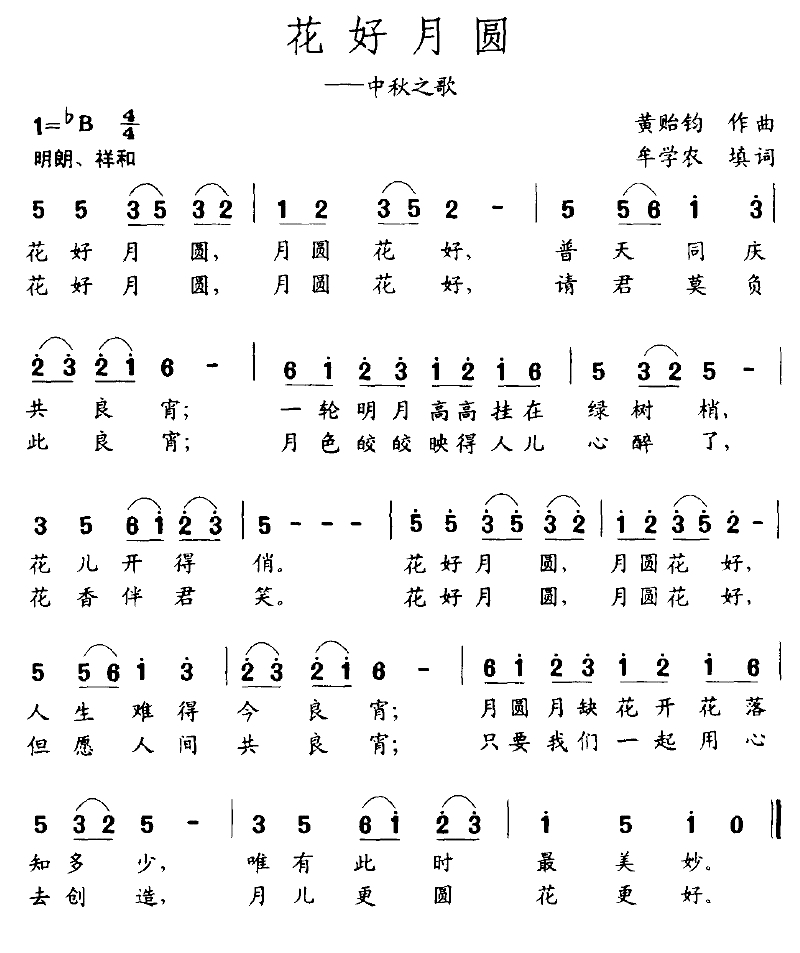 花好月圆
——中秋之歌
1=♭B 4/4 黄贻钧 作曲
明朗、祥和 牟学农 填词
5 5 3 5 3 2 | 1 2 3 5 2 - | 5 5 6 i 3̇ |
花好月圆, 月圆花好, 普天同庆
花好月圆, 月圆花好, 请君莫负
2̇ 3̇ 2̇ i 6 - | 6 i 2̇ 3̇ i 2̇ i 6 | 5 3 2 5 - |
共良宵; 一轮明月高高挂在绿树梢,
此良宵; 月色皎皎映得人儿心醉了,
3 5 6 i 2̇ 3̇ | 5 - - - | 5̇ 5̇ 3̇ 5̇ 3̇ 2̇ | i 2̇ 3̇ 5̇ 2̇ - |
花儿开得俏。 花好月圆, 月圆花好,
花香伴君笑。 花好月圆, 月圆花好,
5 5 6 i 3̇ | 2̇ 3̇ 2̇ i 6 - | 6 i 2̇ 3̇ i 2̇ i 6 |
人生难得今良宵; 月圆月缺花开花落
但愿人间共良宵; 只要我们一起用心
5 3 2 5 - | 3 5 6 i 2̇ 3̇ | i 5 i 0 ‖
知多少, 唯有此时最美妙。
去创造, 月儿更圆花更好。